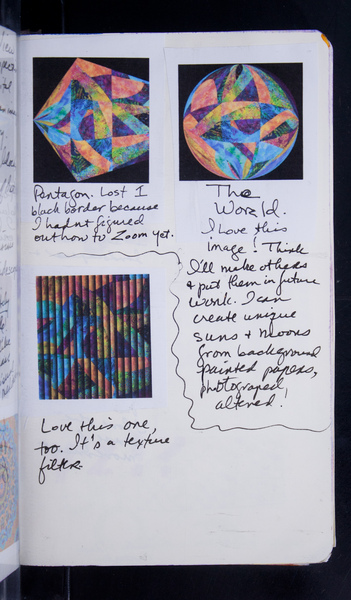 Pentagon. Lost 1
black border because
I hadnt figured
out how to Zoom yet.
The
World.
I Love this
image! Think
I'll make others
& put them in future
work. I can
create unique
suns + moons
from background
painted papers,
photograped,
altered!
Love this one,
too. It's a texture
filter.